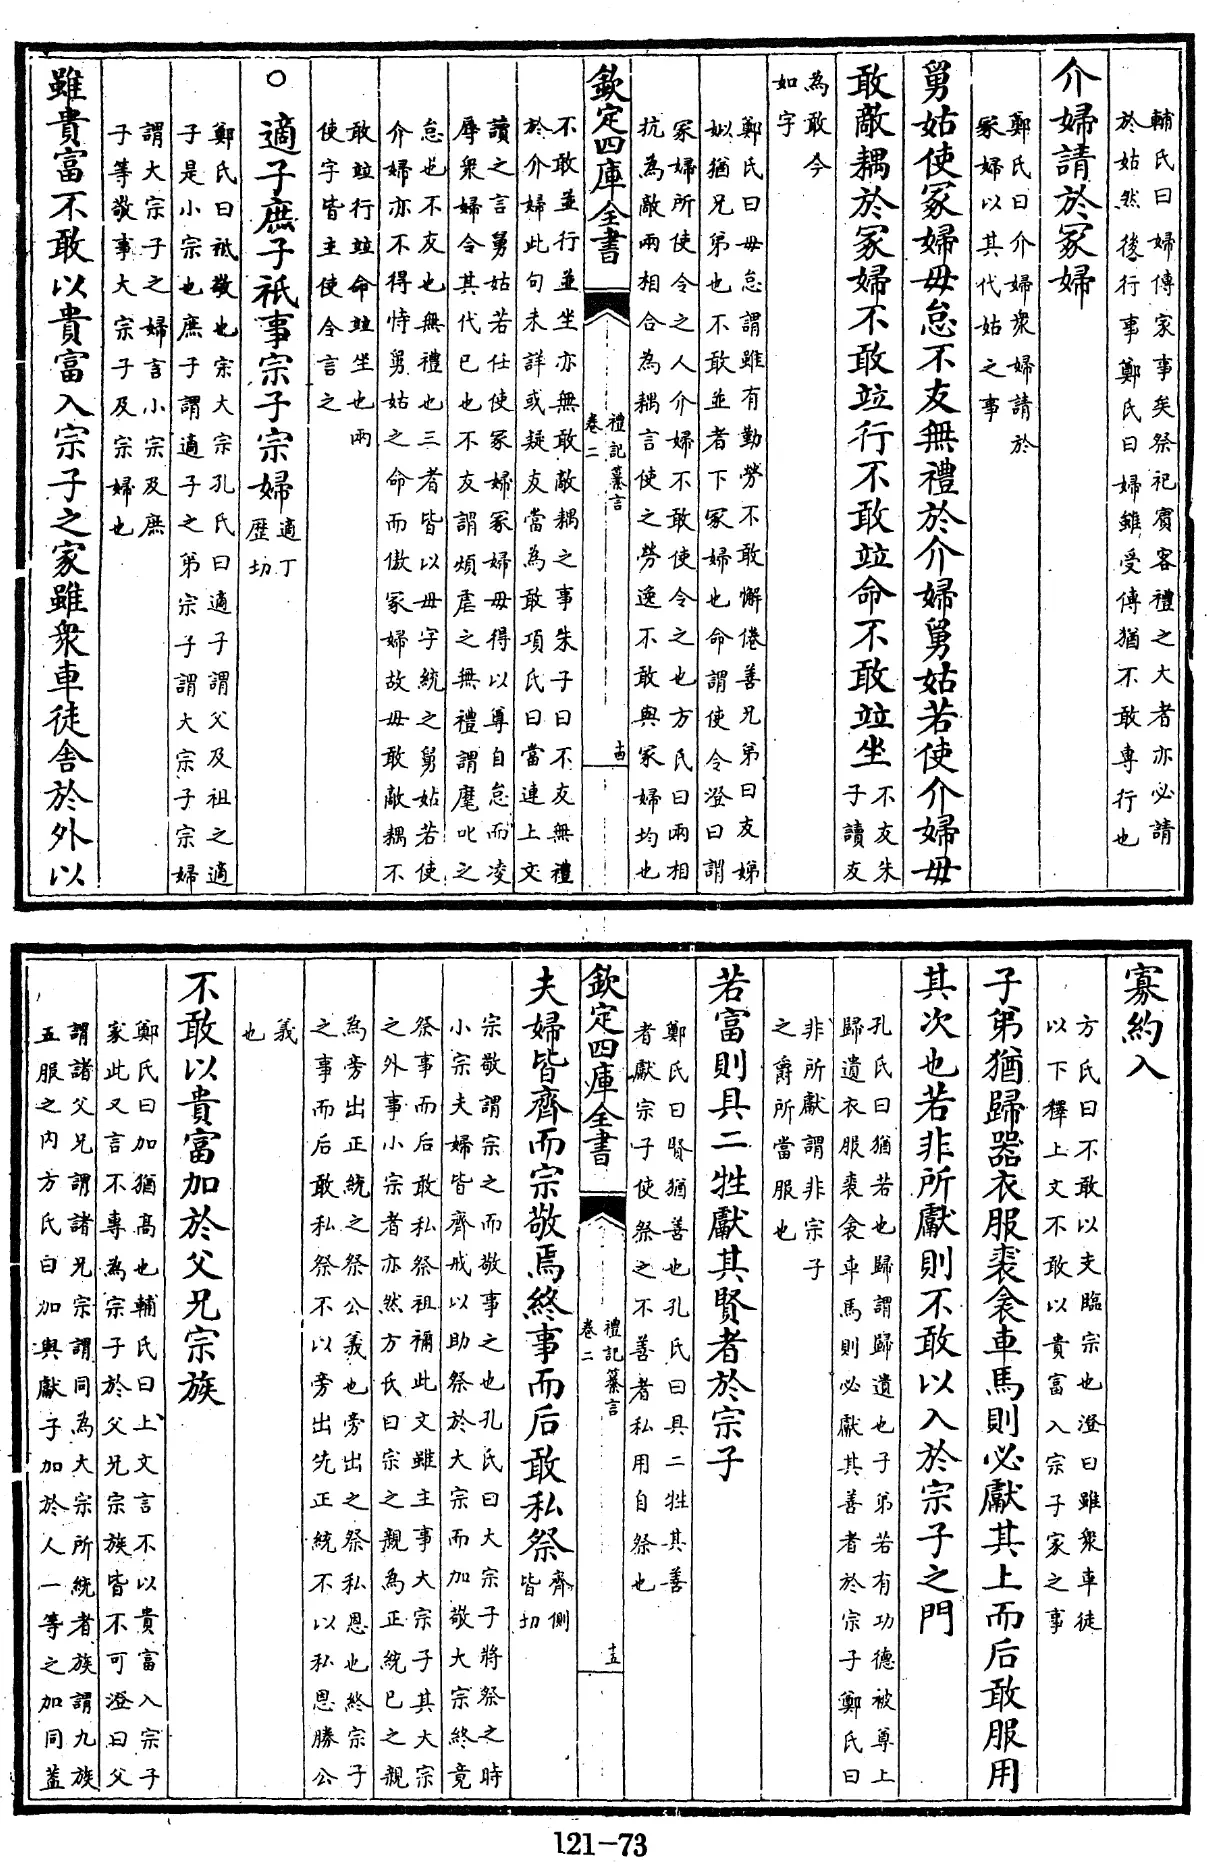 輔氏曰婦傳家事矣祭祀賓客禮之大者亦必請
於姑然後行事鄭氏曰婦雖受傳猶不敢專行也
介婦請於冢婦
鄭氏曰介婦衆婦請於
冢婦以其代姑之事
舅姑使冢婦毋怠不友無禮於介婦舅姑若使介婦毋
敢敵耦於冢婦不敢竝行不敢竝命不敢竝坐
不友朱
子讀友
為敢今
如字
鄭氏曰毋怠謂雖有勤勞不敢懈倦善兄弟曰友娣
姒猶兄弟也不敢並者下冢婦也命謂使令澄曰謂
冢婦所使令之人介婦不敢使令之也方氏曰兩相
抗為敵兩相合為耦言使之勞逸不敢與冢婦均也
欽定四庫全書
禮記纂言
卷二
十四
不敢並行並坐亦無敢敵耦之事朱子曰不友無禮
於介婦此句未詳或疑友當為敢項氏曰當連上文
讀之言舅姑若任使冢婦冢婦毋得以尊自怠而凌
辱衆婦令其代已也不友謂煩虐之無禮謂麾叱之
怠也不友也無禮也三者皆以毋字統之舅姑若使
介婦亦不得恃舅姑之命而傲冢婦故毋敢敵耦不
敢竝行竝命竝坐也兩
使字皆主使令言之
○適子庶子祇事宗子宗婦
適丁
歴切
鄭氏曰祗敬也宗大宗孔氏曰適子謂父及祖之適
子是小宗也庶子謂適子之弟宗子謂大宗子宗婦
謂大宗子之婦言小宗及庶
子等敬事大宗子及宗婦也
雖貴富不敢以貴富入宗子之家雖衆車徒舍於外以
寡約入
方氏曰不敢以支臨宗也澄曰雖衆車徒
以下釋上文不敢以貴富入宗子家之事
子弟猶歸器衣服裘衾車馬則必獻其上而后敢服用
其次也若非所獻則不敢以入於宗子之門
孔氏曰猶若也歸謂歸遺也子弟若有功德被尊上
歸遺衣服裘衾車馬則必獻其善者於宗子鄭氏曰
非所獻謂非宗子
之爵所當服也
若富則具二牲獻其賢者於宗子
鄭氏曰賢猶善也孔氏曰具二牲其善
者獻宗子使祭之不善者私用自祭也
欽定四庫全書
禮記纂言
卷二
十五
夫婦皆齊而宗敬焉終事而后敢私祭
齊側
皆切
宗敬謂宗之而敬事之也孔氏曰大宗子將祭之時
小宗夫婦皆齊戒以助祭於大宗而加敬大宗終竟
祭事而后敢私祭祖禰此文雖主事大宗子其大宗
之外事小宗者亦然方氏曰宗之親為正統已之親
為旁出正統之祭公義也旁出之祭私恩也終宗子
之事而后敢私祭不以旁出先正統不以私恩勝公
義
也
不敢以貴富加於父兄宗族
鄭氏曰加猶高也輔氏曰上文言不以貴富入宗子
家此又言不專為宗子於父兄宗族皆不可澄曰父
謂諸父兄謂諸兄宗謂同為大宗所統者族謂九族
五服之内方氏曰加與獻子加於人一等之加同蓋
121-73